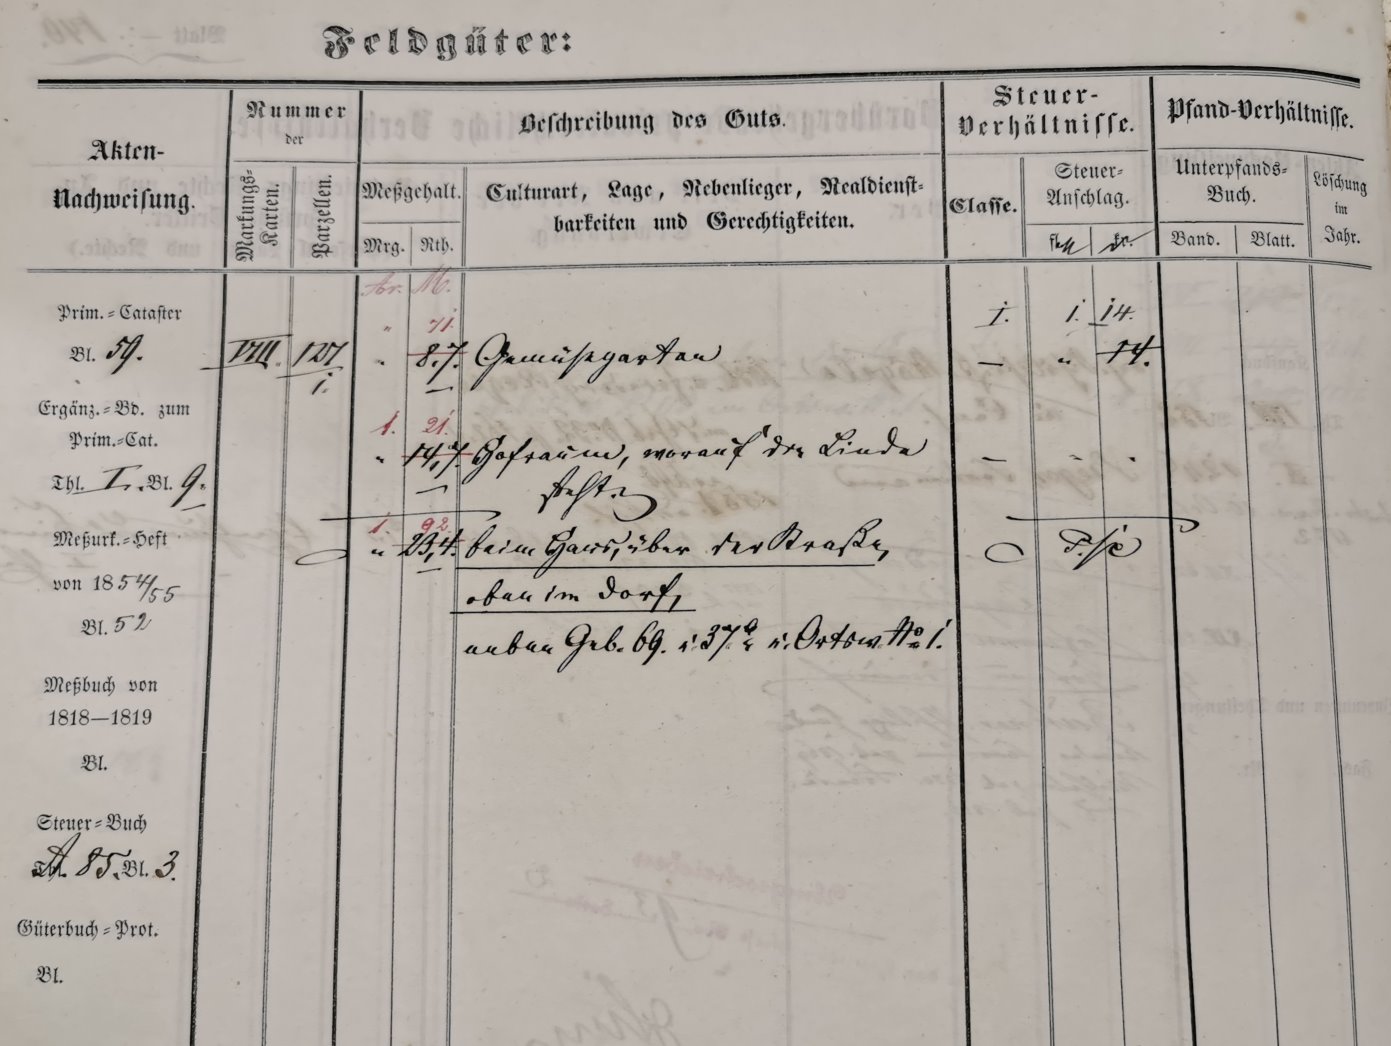 Feldgüter:
Akten-
Nachweisung.
Nummer
der
Markungs-
Karten.
Parzellen.
Beschreibung des Guts.
Meßgehalt.
Mrg. Rth.
Culturart, Lage, Nebenlieger, Realdienst-
barkeiten und Gerechtigkeiten.
Steuer-
Verhältnisse.
Classe.
Steuer-
Anschlag.
kr.
Pfand-Verhältnisse.
Unterpfands-
Buch.
Band. Blatt.
Löschung
im
Jahr.
Ar. M.
Prim.-Cataster
" 71. I. 1. 14.
Bl. 59. VIII. 127 " 8,7. Gemüsegarten — " 14.
1.
Ergänz.-Bd. zum
1. 21.
Prim.-Cat.
" 14,7. Hofraum, worauf die Linde — - -
Thl. I. Bl. 9.
steht.
1. 92.
Meßurk.-Heft
" 23,4. beim Haus, über der Straße,
von 1854/55
oben im Dorf,
Bl. 52
neben Geb. 69. u. 37a u. Ortsw. No 1.
Meßbuch von
1818—1819
Bl.
Steuer-Buch
A. 85. Bl. 3.
Güterbuch-Prot.
Bl.